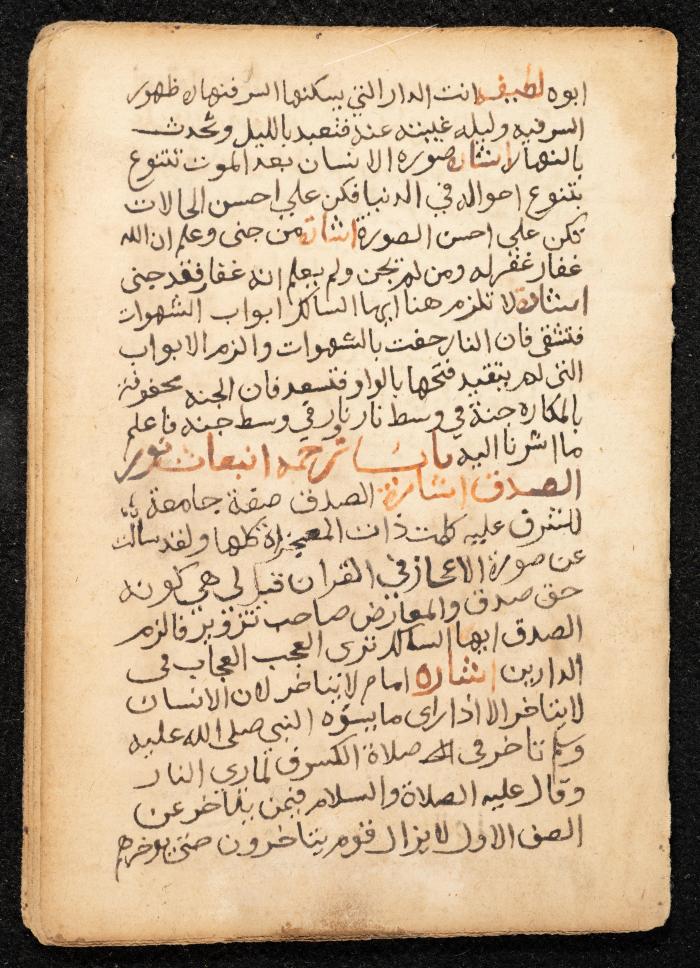 ابوه لطيفه انت الدار التي يسكنها السر فنهاره ظهور
السر فيه وليله غيبته عنه فتعبد بالليل وتحدث
بالنهار اشارة صورة الانسان بعد الموت تتنوع
بتنوع احواله في الدنيا فكن علي احسن الحالات
تكن علي احسن الصورة اشارة من جنى وعلم ان الله
غفار غفر له ومن لم يجن ولم يعلم انه غفار فقد جنى
اشارة لا تلزم هنا ايها السالك ابواب الشهوات
فتشقى فان النار حفت بالشهوات والزم الابواب
التي لم يتقيد فتحها بالواو فتسعد فان الجنه محفوفة
بالمكاره جنة في وسط نار ونار في وسط جنه فاعلم
ما اشرنا اليه باب ترجمه انبعاث نور
الصدق اشارة الصدق صفة جامعة
للشرق عليه كلمت ذات المعجزاة كلها ولقد سالت
عن صورة الاعجاز في القران قيل لي هي كونه
حق صدق والمعارض صاحب تزوير فالزم
الصدق ايها السالك ترى العجب العجاب في
الدارين اشاره امام لا يتاخر لان الانسان
لا يتاخر الا اذا راى ما يسؤه النبي صلى الله عليه
وسلم تاخر في صلاة الكسوف لما راى النار
وقال عليه الصلاة والسلام فيمن يتاخر عن
الصف الاول لا يزال قوم يتاخرون حتى يوخرهم